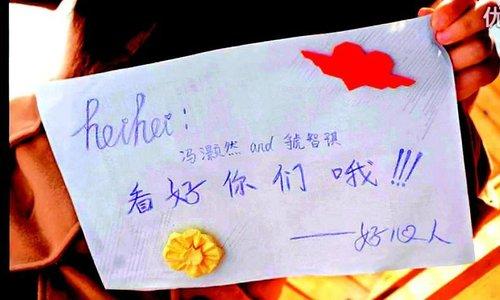 优
heihei:
冯灏然 and 虢智祺
看好你们哦!!!
——好心人